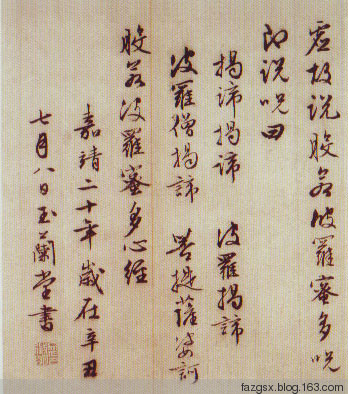 虛故說般若波羅蜜多呪
即說呪曰
揭諦揭諦 波羅揭諦
波羅僧揭諦 菩提薩婆訶
般若波羅蜜多心經
嘉靖二十年歲在辛丑
七月八日玉蘭堂書
fazgsx.blog.163.com